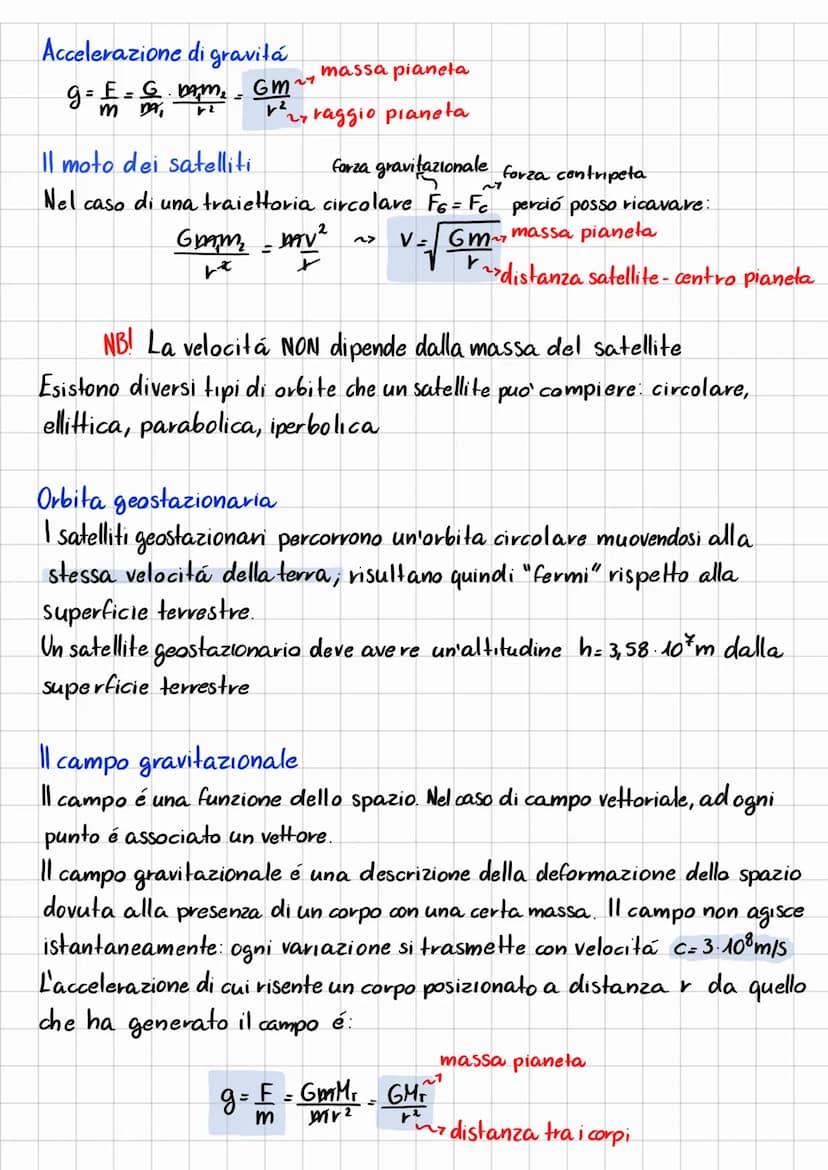 Accelerazione di gravitá
g = F/m = G/m₁ · m₁m₂/r² = Gm/r² ⤳ massa pianeta
⤳ raggio pianeta
Il moto dei satelliti
forza gravitazionale ⤳ forza centripeta
Nel caso di una traiettoria circolare F_G = F_c perció posso ricavare:
Gm₁m₂/r² = mv²/r ⤳ v = √(Gm/r) ⤳ massa pianeta
⤳ distanza satellite - centro pianeta
NB! La velocitá NON dipende dalla massa del satellite
Esistono diversi tipi di orbite che un satellite puo' compiere: circolare,
ellittica, parabolica, iperbolica
Orbita geostazionaria
I satelliti geostazionari percorrono un'orbita circolare muovendosi alla
stessa velocitá della terra; risultano quindi "fermi" rispetto alla
superficie terrestre.
Un satellite geostazionario deve avere un'altitudine h = 3,58·10⁷m dalla
superficie terrestre
Il campo gravitazionale
Il campo é una funzione dello spazio. Nel caso di campo vettoriale, ad ogni
punto é associato un vettore.
Il campo gravitazionale é una descrizione della deformazione dello spazio
dovuta alla presenza di un corpo con una certa massa. Il campo non agisce
istantaneamente: ogni variazione si trasmette con velocitá c = 3·10⁸m/s
L'accelerazione di cui risente un corpo posizionato a distanza r da quello
che ha generato il campo é:
massa pianeta
g = F/m = GmM_T/mr² = GM_T/r²
⤳ distanza tra i corpi